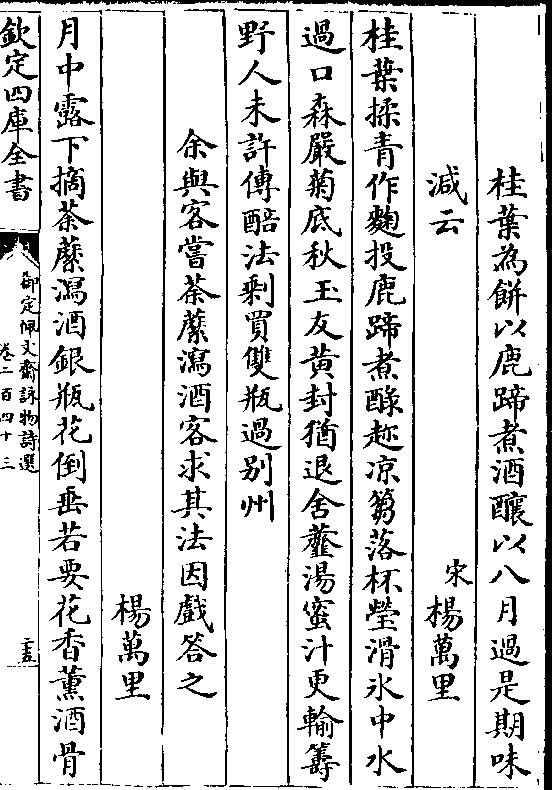 桂葉為餅以鹿蹄煮酒釀以八月過是期味
減云　宋楊萬里
桂葉揉青作麴投鹿蹄煮醁趂凉篘落杯瑩滑氷中水
過口森嚴菊底秋玉友黄封猶退舍虀湯蜜汁更輸籌
野人未許傳醅法剩買雙瓶過别州
余與客嘗荼蘪瀉酒客求其法因戲答之
楊萬里
月中露下摘荼蘪瀉酒銀瓶花倒垂若要花香薰酒骨
欽定四庫全書
御定佩文齋詠物詩選
卷二百四十三
二五